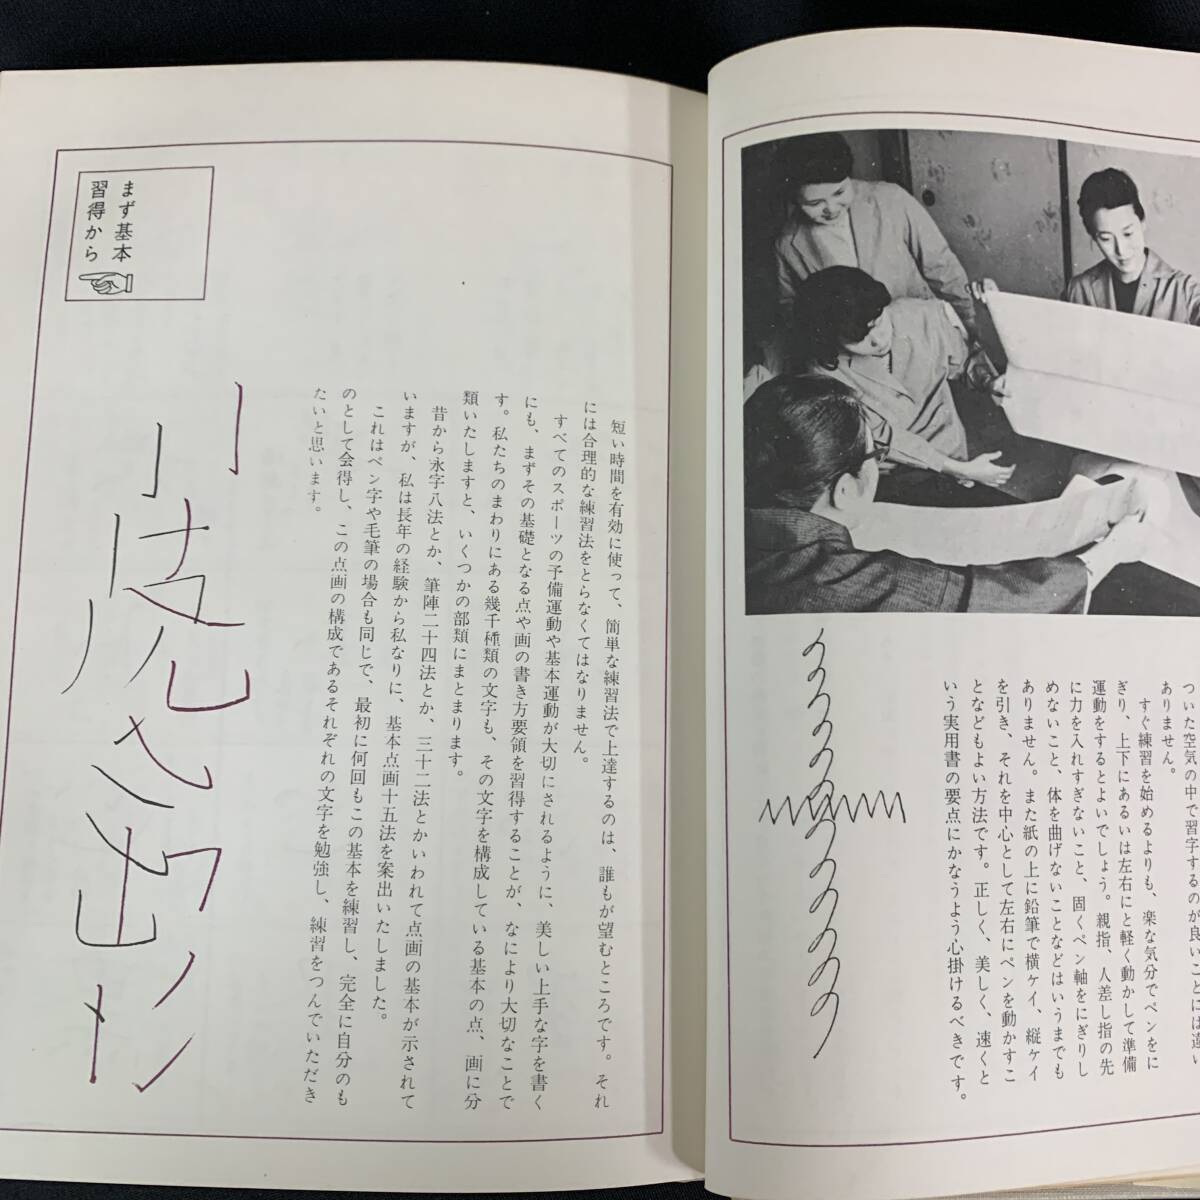 ついた空気の中で習字するのが良いことには違い
ありません。
すぐ練習を始めるよりも、楽な気分でペンをに
ぎり、上下にあるいは左右にと軽く動かして準備
運動をするとよいでしょう。親指、人差し指の先
に力を入れすぎないこと、固くペン軸をにぎりし
めないこと、体を曲げないことなどはいうまでも
ありません。また紙の上に鉛筆で横ケイ、縦ケイ
を引き、それを中心として左右にペンを動かすこ
となどもよい方法です。正しく、美しく、速くと
いう実用書の要点にかなうよう心掛けるべきです。
まず基本
習得から
短い時間を有効に使って、簡単な練習法で上達するのは、誰もが望むところです。それ
には合理的な練習法をとらなくてはなりません。
すべてのスポーツの予備運動や基本運動が大切にされるように、美しい上手な字を書く
にも、まずその基礎となる点や画の書き方要領を習得することが、なにより大切なことで
す。私たちのまわりにある幾千種類の文字も、その文字を構成している基本の点、画に分
類いたしますと、いくつかの部類にまとまります。
昔から永字八法とか、筆陣二十四法とか、三十二法とかいわれて点画の基本が示されて
いますが、私は長年の経験から私なりに、基本点画十五法を案出いたしました。
これはペン字や毛筆の場合も同じで、最初に何回もこの基本を練習し、完全に自分のも
のとして会得し、この点画の構成であるそれぞれの文字を勉強し、練習をつんでいただき
たいと思います。